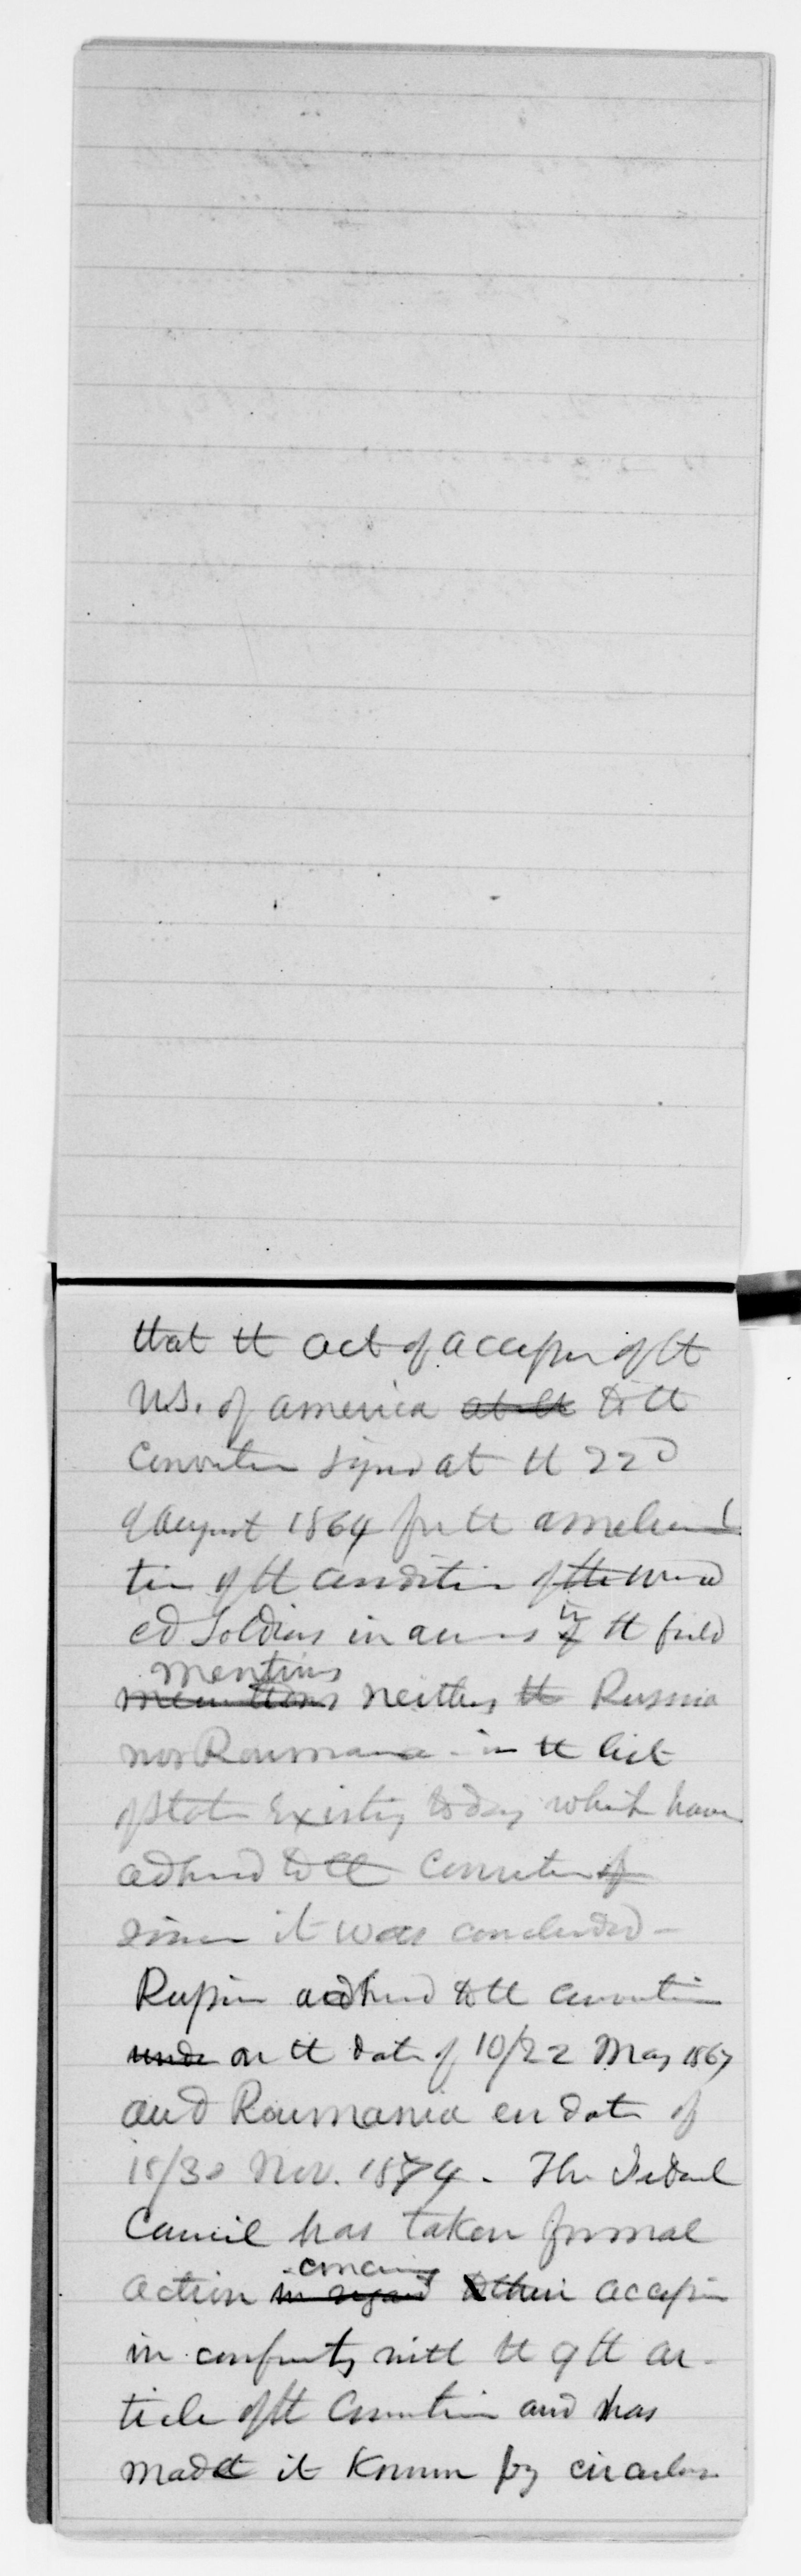 that tt act of accession of tt
U.S. of america at tt to tt
Convention signed at tt 22d
of august 1864 for tt ameliora
tion of tt condition of the wound
ed Soldiers in armies of in tt field
mentions
neither tt Russia
nor Roumania - in tt list
of States Existing today which have
adhered to tt Convention of
since it was concluded -
Russia adhered to tt convention
under on tt date of 10/22 May 1867
and Roumania en date of
18/30 Nov. 1874. The Federal
Council has taken formal
concerning
action in regard to their accession
in conformity with tt 9tt ar-
ticle of tt Convention and has
made it Known by circular